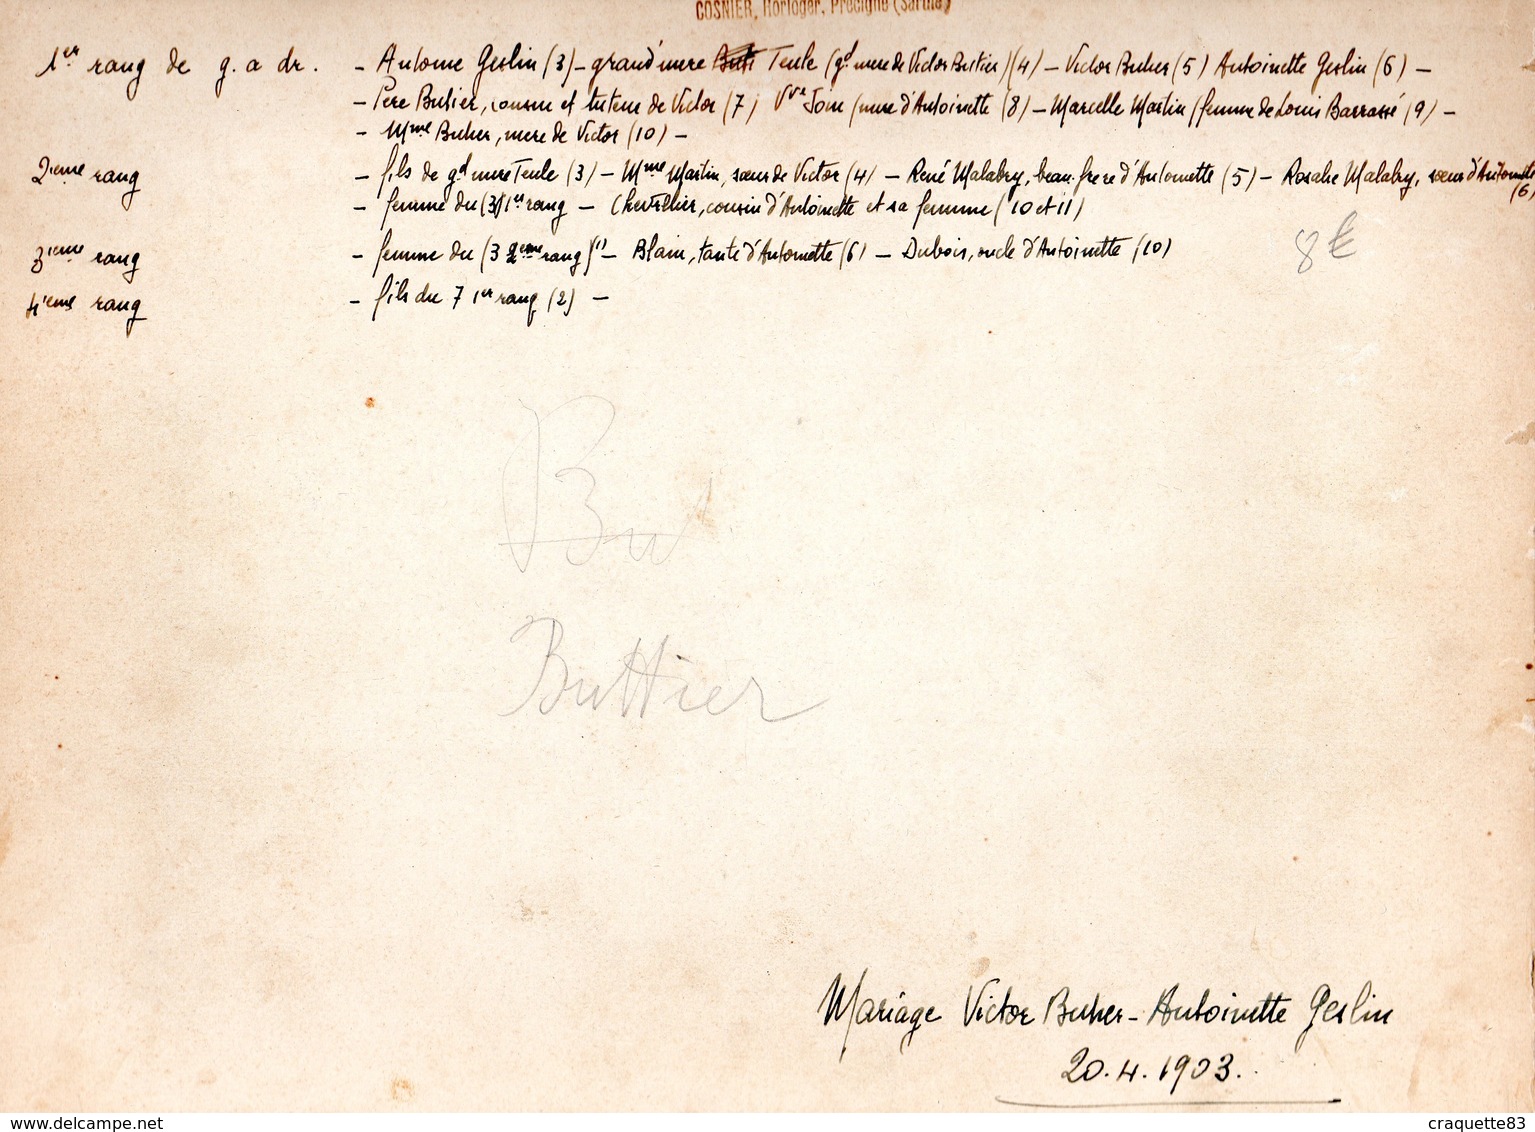 COSNIER, Horloger, Précigné (Sarthe)
1er rang de g. a dr. - Antoine Geslin (3) - grand'mere Teule (gd mere de Victor Butier) (4) - Victor Butier (5) Antoinette Geslin (6) -
- Pere Butier, cousin et tuteur de Victor (7) Vve Join (mere d'Antoinette (8) - Marcelle Martin (femme de Louis Barrassé (9) -
- Mme Butier, mere de Victor (10) -
2ieme rang - fils de gd mere Teule (3) - Mme Martin, sœur de Victor (4) - René Malabry, beau-frere d'Antoinette (5) - Rosalie Malabry, sœur d'Antoinette (6)
- femme du (3) 1er rang - Chevallier, cousin d'Antoinette et sa femme (10 et 11)
3ieme rang - femme du (3 2eme rang) (1) - Blain, tante d'Antoinette (6) - Dubois, oncle d'Antoinette (10)
8€
4ieme rang - fils du 7 1er rang (2) -
Bu
Buttier
Mariage Victor Butier - Antoinette Geslin
20.4.1903.
www.delcampe.net craquette83